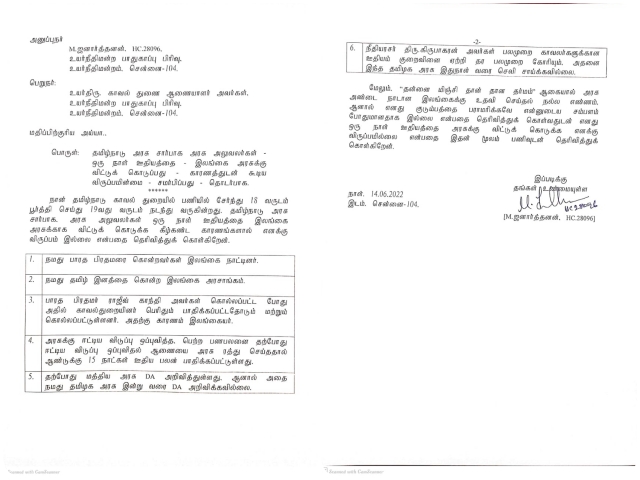 அனுப்புநர்
M.ஜனார்த்தனன், HC.28096,
உயர்நீதிமன்ற பாதுகாப்பு பிரிவு,
உயர்நீதிமன்றம், சென்னை-104.
பெறுநர்:
உயர்திரு. காவல் துணை ஆணையாளர் அவர்கள்,
உயர்நீதிமன்ற பாதுகாப்பு பிரிவு,
உயர்நீதிமன்றம், சென்னை-104.
மதிப்பிற்குரிய அய்யா..
பொருள்: தமிழ்நாடு அரசு சார்பாக அரசு அலுவலர்கள் -
ஒரு நாள் ஊதியத்தை - இலங்கை அரசுக்கு
விட்டுக் கொடுப்பது - காரணத்துடன் கூடிய
விருப்பமின்மை - சமர்பிப்பது - தொடர்பாக.
******
நான் தமிழ்நாடு காவல் துறையில் பணியில் சேர்ந்து 18 வருடம்
பூர்த்தி செய்து 19வது வருடம் நடந்து வருகின்றது. தமிழ்நாடு அரசு
சார்பாக. அரசு அலுவலர்கள் ஒரு நாள் ஊதியத்தை இலங்கை
அரசுக்காக விட்டுக் கொடுக்க கீழ்கண்ட காரணங்களால் எனக்கு
விருப்பம் இல்லை என்பதை தெரிவித்துக் கொள்கிறேன்.
1. நமது பாரத பிரதமரை கொன்றவர்கள் இலங்கை நாட்டினர்.
2. நமது தமிழ் இனத்தை கொன்ற இலங்கை அரசாங்கம்.
3. பாரத பிரதமர் ராஜீவ் காந்தி அவர்கள் கொல்லப்பட்ட போது
அதில் காவல்துறையினர் பெரிதும் பாதிக்கப்பட்டதோடும் மற்றும்
கொல்லப்பட்டுள்ளனர். அதற்கு காரணம் இலங்கையர்.
4. அரசுக்கு ஈட்டிய விடுப்பு ஒப்புவித்த. பெற்ற பணபலனை தற்போது
ஈட்டிய விடுப்பு ஒப்புவிதல் ஆணையை அரசு ரத்து செய்ததால்
ஆண்டுக்கு 15 நாட்கள் ஊதிய பலன் பாதிக்கப்பட்டுள்ளது.
5. தற்போது மத்திய அரசு DA அறிவித்துள்ளது. ஆனால் அதை
நமது தமிழக அரசு இன்று வரை DA அறிவிக்கவில்லை.
-2-
6. நீதியரசர் திரு.கிருபாகரன் அவர்கள் பலமுறை காவலர்களுக்கான
ஊதியம் குறைவினை ஏற்றி தர பலமுறை கோரியும். அதனை
இந்த தமிழக அரசு இதுநாள் வரை செவி சாய்க்கவில்லை.
மேலும், "தன்னை மிஞ்சி தான் தான தர்மம்" ஆகையால் அரசு
அண்டை நாடான இலங்கைக்கு உதவி செய்தல் நல்ல எண்ணம்.
ஆனால் எனது குடும்பத்தை பராமரிக்கவே என்னுடைய சம்பளம்
போதுமானதாக இல்லை என்பதை தெரிவித்துக் கொள்வதுடன் எனது
ஒரு நாள் ஊதியத்தை அரசுக்கு விட்டுக் கொடுக்க எனக்கு
விருப்பமில்லை என்பதை இதன் மூலம் பணிவுடன் தெரிவித்துக்
கொள்கிறேன்.
இப்படிக்கு
தங்கள் உண்மையுள்ள
HC 28096
[M.ஜனார்த்தனன், HC.28096]
நாள். 14.06.2022
இடம். சென்னை-104.
Scanned with CamScanner
Scanned with CamScanner